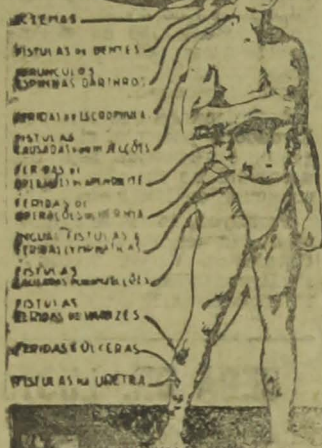 ECZEMAS
FISTULAS DE DENTES
FURUNCULOS
ESPINHAS DARTHROS
FERIDAS DE ESCROPHULA
FISTULAS
CAUSADAS POR INJECÇÕES
FERIDAS DE
OPERAÇÕES DE APENDICITE
FERIDAS DE
OPERAÇÕES DE HERNIA
INGUAS FISTULAS E
FERIDAS LYMPHATICAS
FISTULAS
CAUSADAS POR INJECÇÕES
FISTULAS
FERIDAS DE VARIZES
FERIDAS E ÚLCERAS
FISTULAS NA URETRA